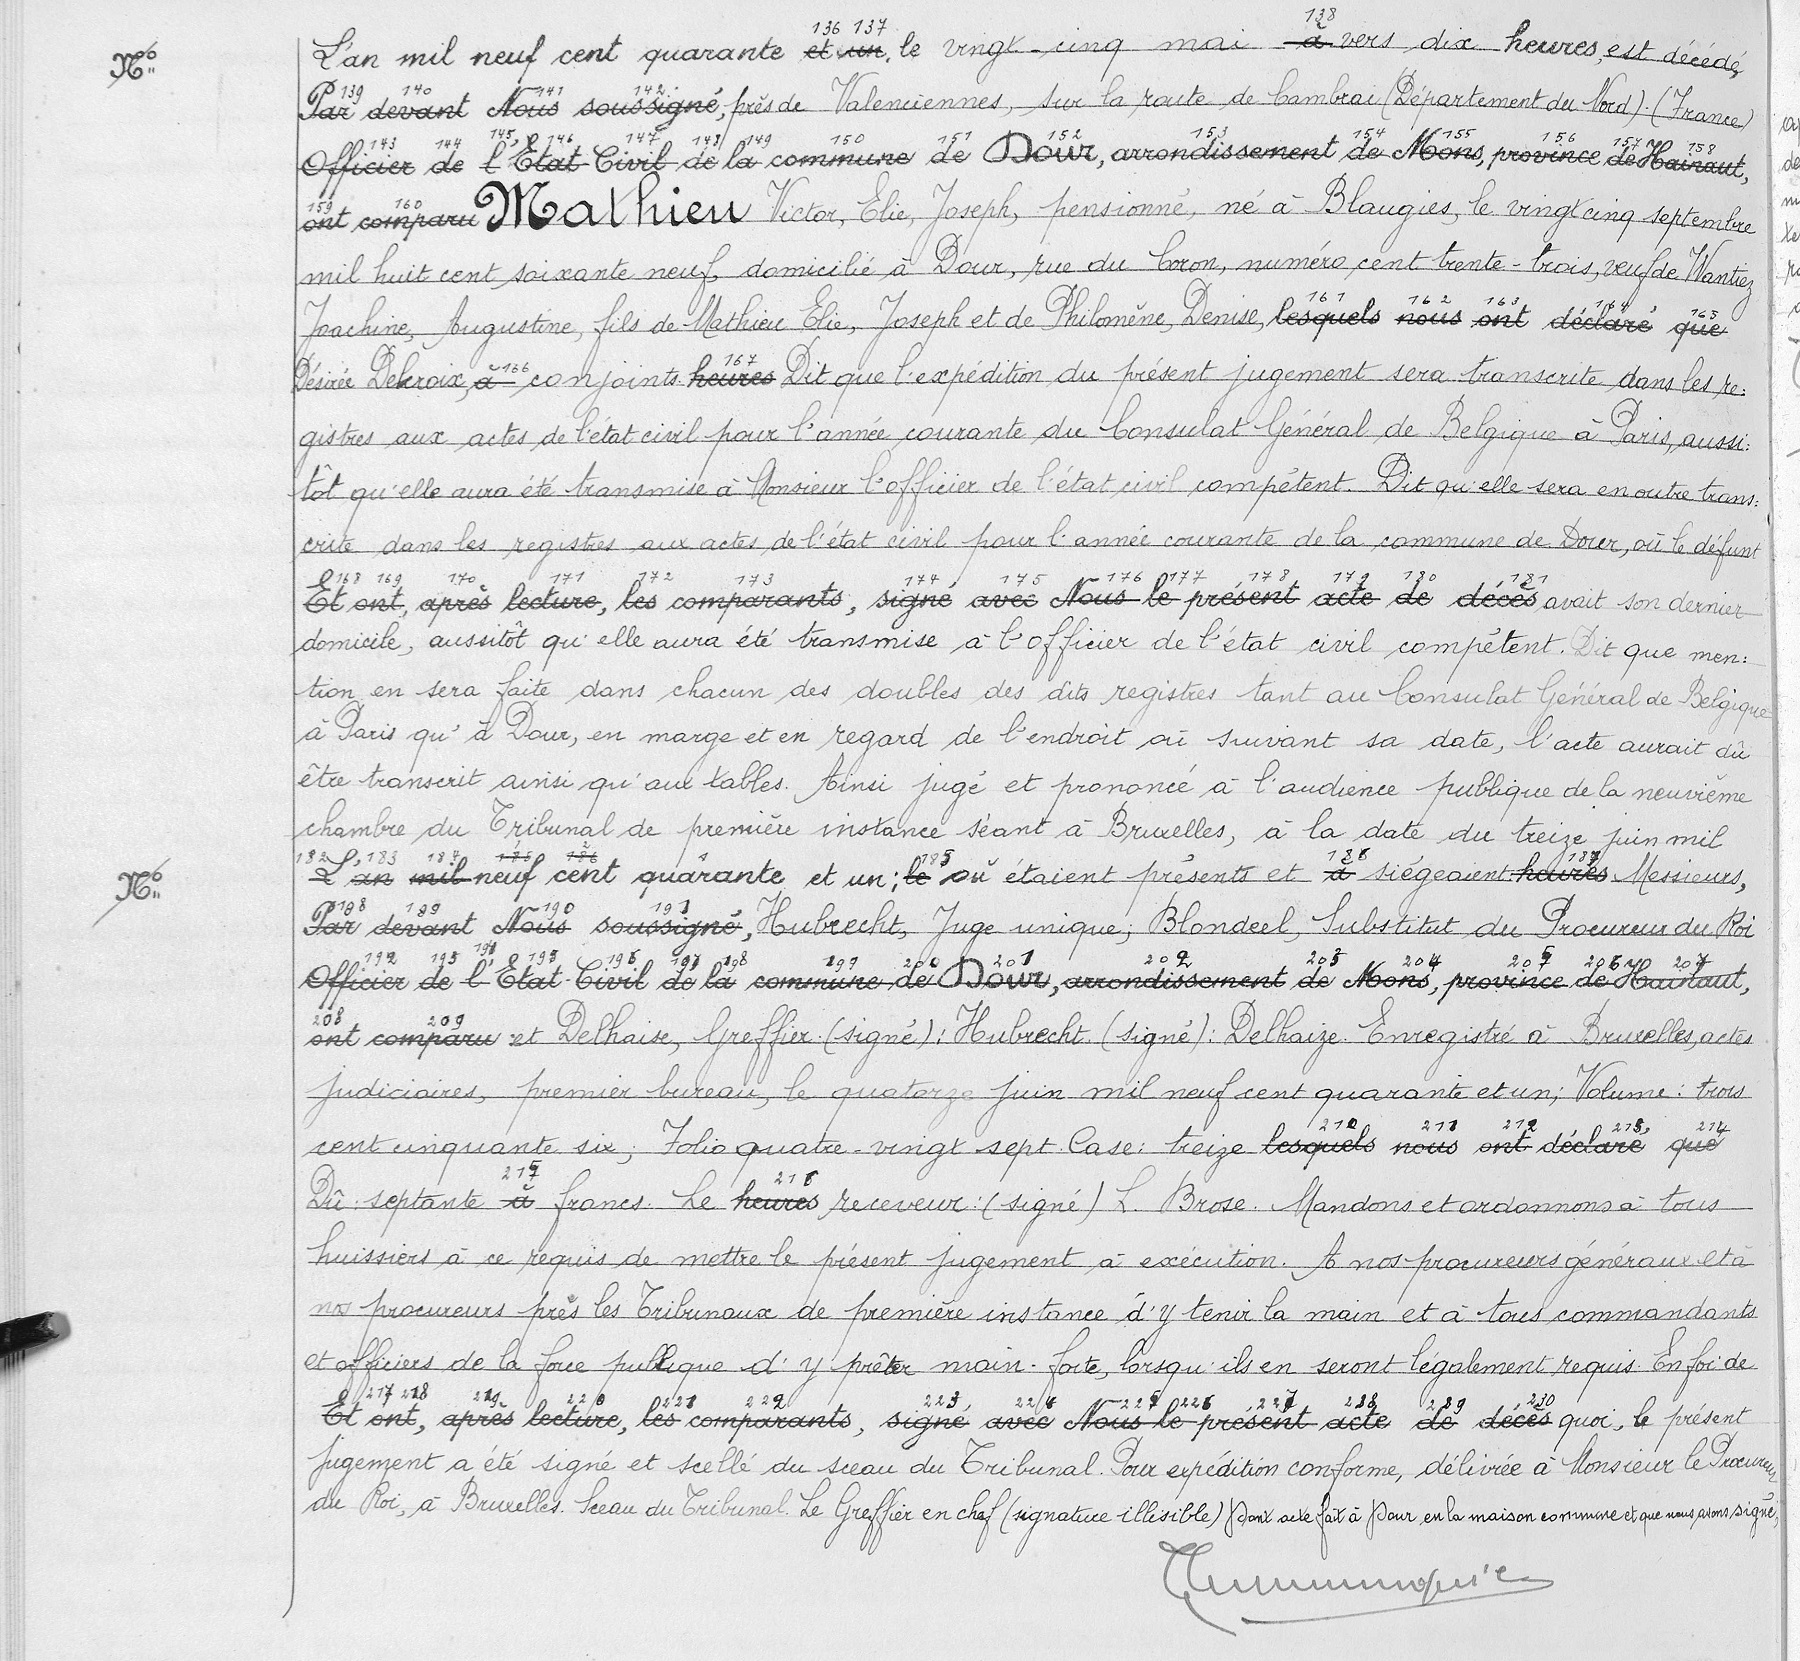 N°
136 137 138
L'an mil neuf cent quarante et un, le vingt-cinq mai à vers dix heures, est décédé,
139 140 141 142
Par devant Nous soussigné, près de Valenciennes, sur la route de Cambrai (Département du Nord) (France)
143 144 145 146 147 148 149 150 151 152 153 154 155 156 157 158
Officier de l'Etat Civil de la commune de Dour, arrondissement de Mons, province de Hainaut,
159 160
ont comparu Mathieu Victor, Elie, Joseph, pensionné, né à Blaugies, le vingt cinq septembre
mil huit cent soixante neuf, domicilié à Dour, rue du Coron, numéro cent trente-trois, veuf de Wantiez
161 162 163 164 165
Joachine, Augustine, fils de Mathieu Elie, Joseph et de Philomène, Denise, lesquels nous ont déclaré que
166 167
Désirée Delcroix, à conjoints. heures Dit que l'expédition du présent jugement sera transcrite dans les re:
gistres aux actes de l'état civil pour l'année courante du Consulat Général de Belgique à Paris, aussi:
tôt qu'elle aura été transmise à Monsieur l'officier de l'état civil compétent. Dit qu'elle sera en outre trans:
crite dans les registres aux actes de l'état civil pour l'année courante de la commune de Dour, où le défunt
168 169 170 171 172 173 174 175 176 177 178 179 180 181
Et ont, après lecture, les comparants, signé avec Nous le présent acte de décès avait son dernier
domicile, aussitôt qu'elle aura été transmise à l'officier de l'état civil compétent. Dit que men:
tion en sera faite dans chacun des doubles des dits registres tant au Consulat Général de Belgique
à Paris qu'à Dour, en marge et en regard de l'endroit où suivant sa date, l'acte aurait dû
être transcrit ainsi qu'aux tables. Ainsi jugé et prononcé à l'audience publique de la neuvième
chambre du Tribunal de première instance séant à Bruxelles, à la date du treize juin mil
N°
182 183 184 185 186
L'an mil neuf cent quarante et un; le où étaient présents et à siégeaient heures Messieurs,
Par devant Nous soussigné, Hubrecht, Juge unique; Blondeel, Substitut du Procureur du Roi
Officier de l'Etat Civil de la commune de Dour, arrondissement de Mons, province de Hainaut,
208 209
ont comparu et Delhaise, Greffier. (signé): Hubrecht. (signé): Delhaize. Enregistré à Bruxelles, actes
judiciaires, premier bureau, le quatorze juin mil neuf cent quarante et un; Volume: trois
210 211 212 213 214
cent cinquante six; Folio quatre-vingt sept. Case: treize lesquels nous ont déclaré que
215 216
Dû: septante à francs. Le heures receveur: (signé) L. Brose. Mandons et ordonnons à tous
huissiers à ce requis de mettre le présent jugement à exécution. A nos procureurs généraux et à
nos procureurs près les Tribunaux de première instance d'y tenir la main et à tous commandants
et officiers de la force publique d'y prêter main-forte, lorsqu'ils en seront légalement requis. En foi de
217 218 219 220 221 222 223 224 225 226 227 228 229 230
Et ont, après lecture, les comparants, signé avec Nous le présent acte de décès quoi, le présent
jugement a été signé et scellé du sceau du Tribunal. Pour expédition conforme, délivrée à Monsieur le Procureur
du Roi, à Bruxelles. Sceau du Tribunal. Le Greffier en chef (signature illisible) Dont acte fait à Dour en la maison commune et que nous avons signé,